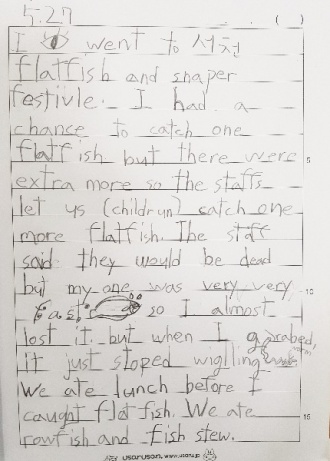 5.27 ( )
I went to 서천
flatfish and snaper
festivle. I had a
chance to catch one
flatfish but there were
5
extra more so the staffs
let us (childrun) catch one
more flatfish. The staff
said they would be dead
but my one was very very
10
fast. so I almost
lost it. but when I grabed,
it just stoped wiglling
We ate lunch before I
caught flatfish. We ate
15
rawfish and fish stew.
usarusan.